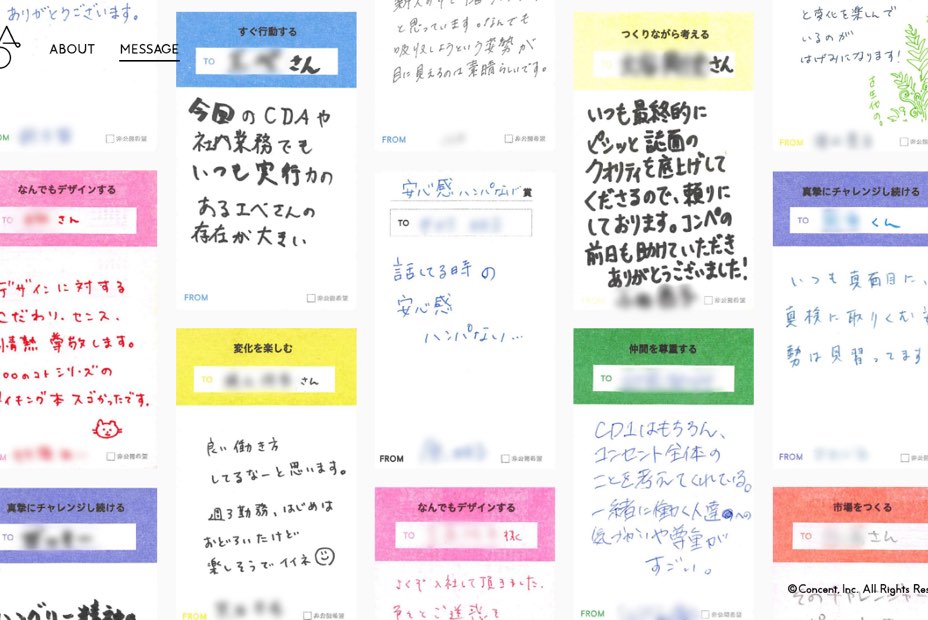 ありがとうございます。
ABOUT
MESSAGE
すぐ行動する
TO さん
今回のCDAや
社内業務でも
いつも実行力の
あるエベさんの
存在が大きい
FROM
非公開希望
と思っています。なんでも
吸収しようという姿勢が
目に見えるのは素晴らしいです。
FROM
非公開希望
つくりながら考える
TO さん
いつも最終的に
ビシッと誌面の
クオリティを底上げして
くださるので、頼りに
しております。コンペの
前日も助けていただき
ありがとうございました!
非公開希望
と変化を楽しんで
いるのが
はげみになります!
FROM
非公開希望
なんでもデザインする
TO さん
デザインに対する
こだわり、センス、
情熱 尊敬します。
コトシリーズの
スゴかったです。
非公開希望
変化を楽しむ
TO さん
良い働き方
してるなーと思います。
週3勤務、はじめは
おどろいたけど
楽しそうでイイネ
FROM
非公開希望
安心感ハンパない賞
TO
話してる時の
安心感
ハンパない…
FROM
非公開希望
仲間を尊重する
TO
CD1はもちろん、
コンセント全体の
ことを考えてくれている。
一緒に働く人達への
気づかいや尊重が
すごい。
FROM
非公開希望
真摯にチャレンジし続ける
TO くん
いつも真面目に、
真検に取りくむ姿
勢は見習ってます
FROM
非公開希望
真摯にチャレンジし続ける
TO
ハングリー精神の
なんでもデザインする
TO 様
ようこそ入社して頂きました。
市場をつくる
TO さん
©Concent, Inc. All Rights Res